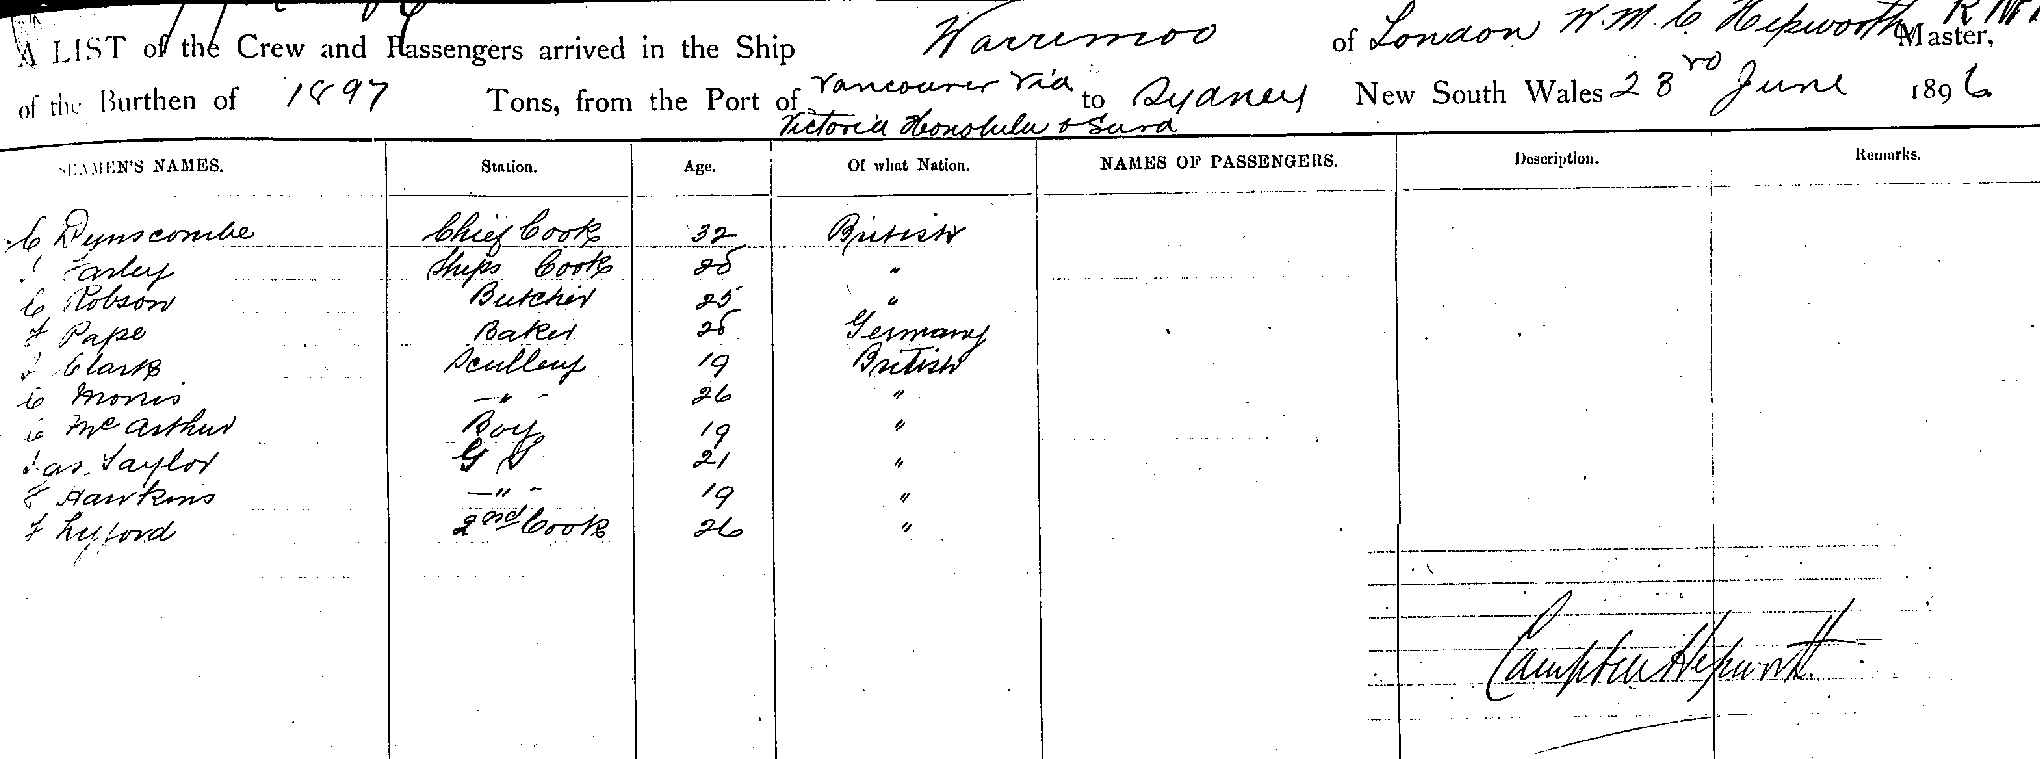 A LIST of the Crew and Passengers arrived in the Ship Warrimoo of London W. M. C. Hepworth R.N.R. Master,
of the Burthen of 1897 Tons, from the Port of Vancouver Via to Sydney New South Wales 23rd June 1896
Victoria Honolulu & Suva
SEAMEN'S NAMES. Station. Age. Of what Nation. NAMES OF PASSENGERS. Description. Remarks.
C Dynscombe Chief Cook 32 British
Farley Ships Cook 25 "
C Robson Butcher 25 "
F Pape Baker 25 Germany
J Clark Scullery 19 British
C Morris -"- 26 "
C McArthur Boy 19 "
Jas. Taylor G S 21 "
Hawkins -"- 19 "
F Lyford 2nd Cook 26 "
Campbell Hepworth.